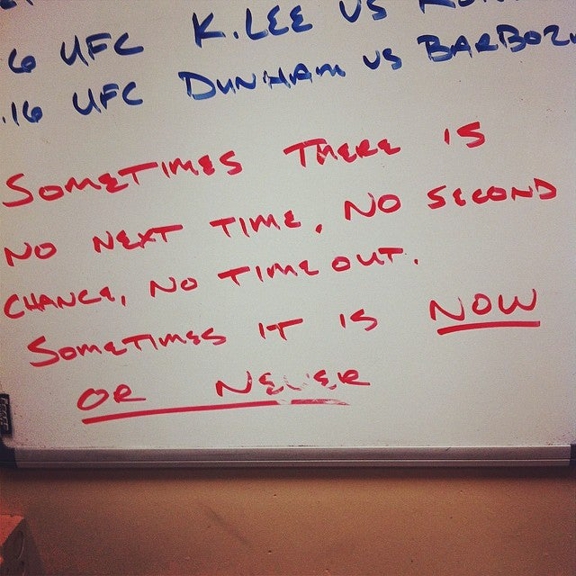 6 UFC K.LEE VS
.16 UFC DUNHAM VS BARBOZ
SOMETIMES THERE IS
NO NEXT TIME, NO SECOND
CHANCE, NO TIME OUT.
SOMETIMES IT IS NOW
OR NEVER